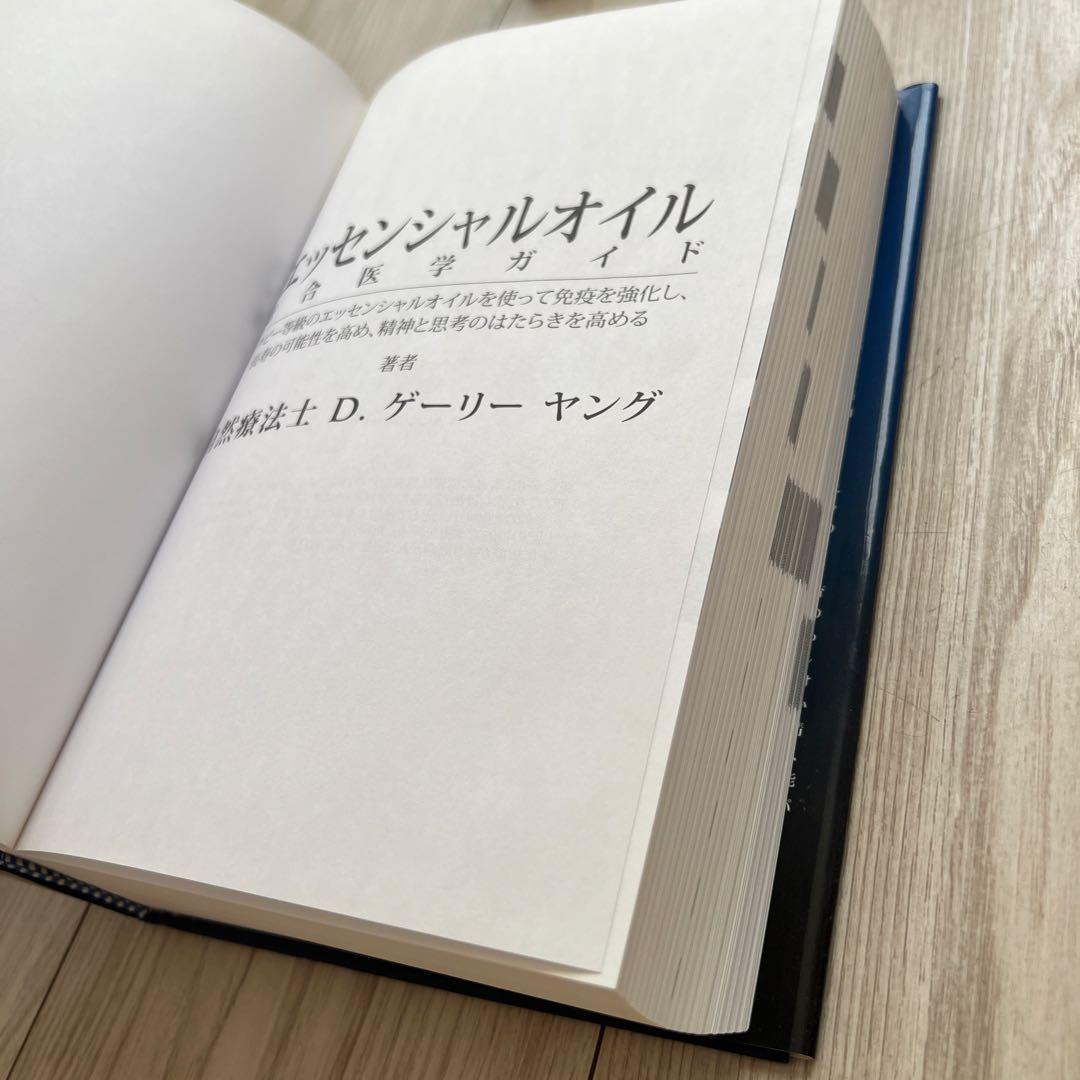 エッセンシャルオイル
合医学ガイド
等級のエッセンシャルオイルを使って免疫を強化し、
の可能性を高め、精神と思考のはたらきを高める
著者
然療法士 D. ゲーリー ヤング